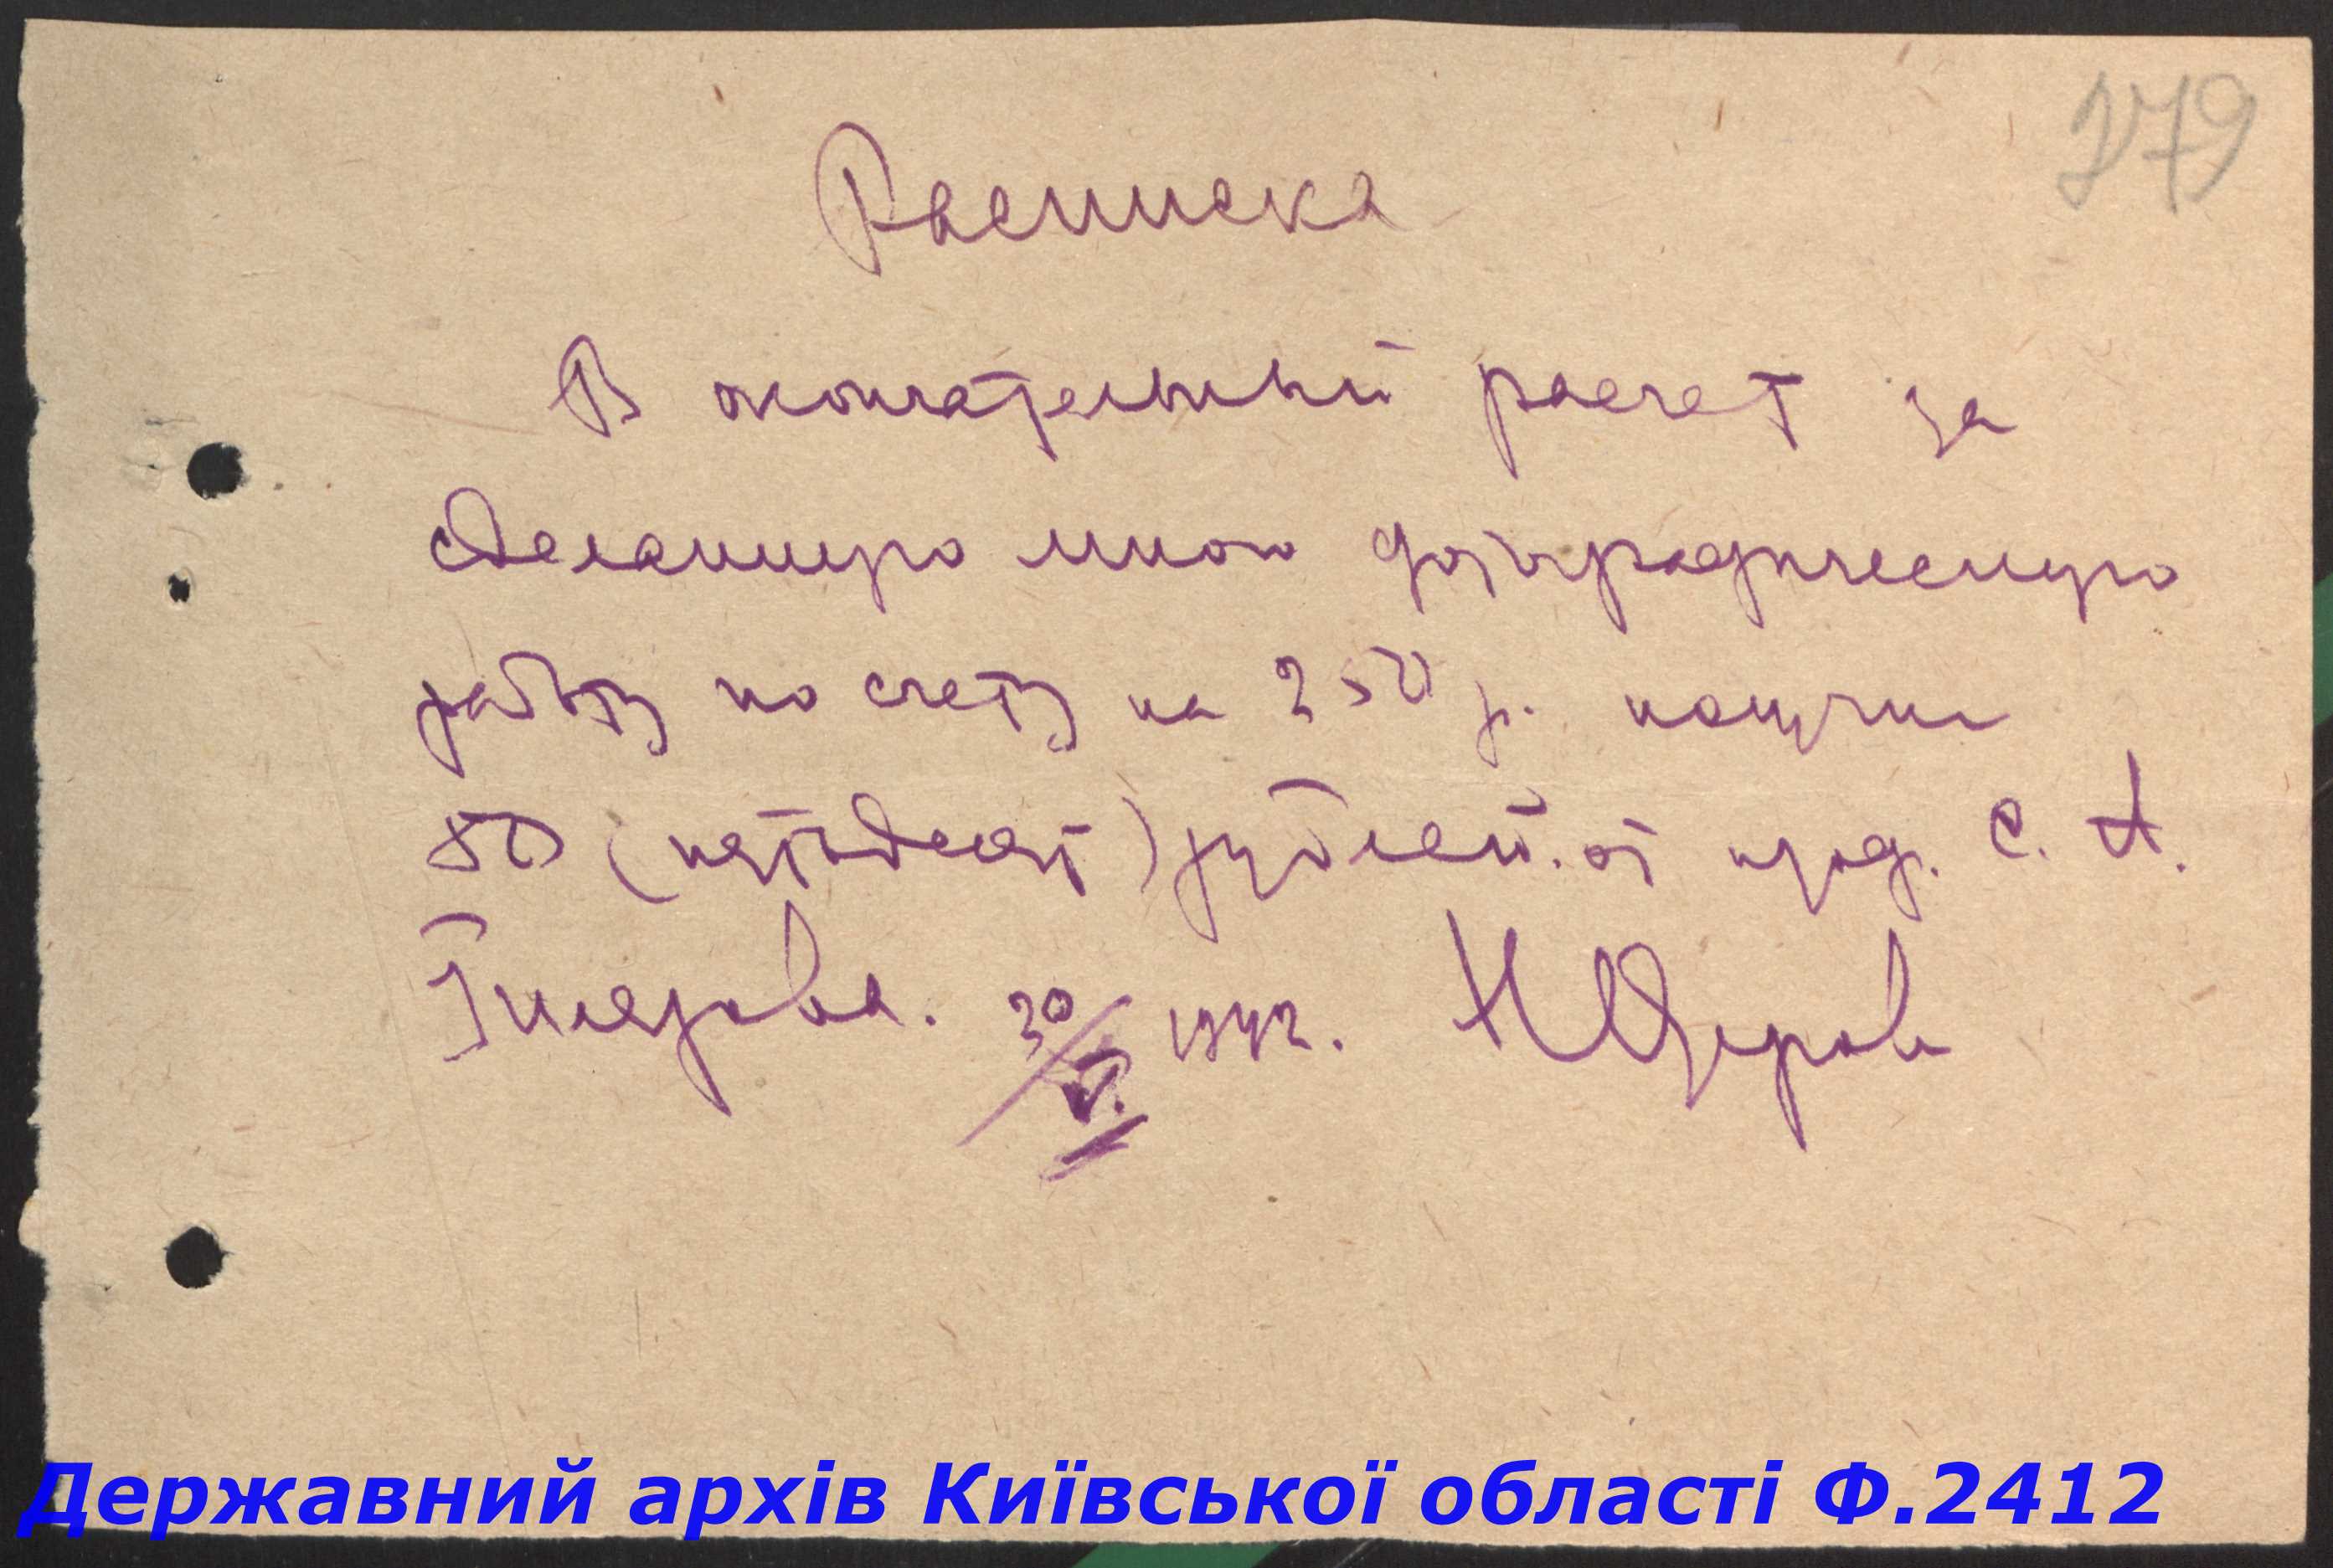 279
Расписка
В окончательный расчет за
сделанную мною фотографическую
работу по счету на 250 р. получил
50 (пятьдесят) рублей. от проф. С. А.
Гилярова. 30/V. 1942.
Державний архів Київської області Ф.2412